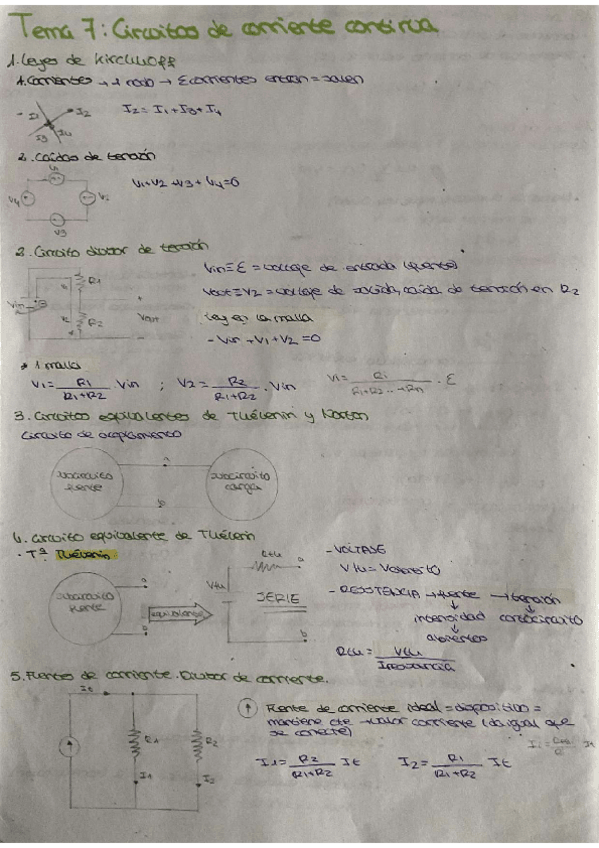 Tema 7: Circuitos de corriente continua
1. Leyes de Kirchhoff
1. Corrientes → 1 nodo → Σcorrientes entran = salen
I1 I2 I3 I4
I2 = I1 + I3 + I4
2. Caídas de tensión
V1 + V2 + V3 + V4 = 0
V4 V2
V3
2. Circuito divisor de tensión
R1
Vin
R2
Vout
Vin ≡ ε = voltaje de entrada (fuente)
Vout ≡ V2 = voltaje de salida, caída de tensión en R2
Ley en la malla
- Vin + V1 + V2 = 0
1 malla
V1 = R1 / R1+R2 Vin ; V2 = R2 / R1+R2 . Vin
Vi = Ri / R1+R2...+Rn . ε
3. Circuitos equivalentes de Thévenin y Norton
Circuito de acoplamiento
subcircuito fuente
a
b
subcircuito carga
4. Circuito equivalente de Thévenin
· Tª Thévenin
subcircuito fuente
a
b
equivalente
Rth
Vth
SERIE
a
b
- VOLTAJE
Vth = Vabierto
- RESISTENCIA → fuente → tensión
intensidad cortocircuito
abiertos
Rth = Vth /
5. Fuentes de corriente. Divisor de corriente.
It
R1 R2
I1 I2
Fuente de corriente ideal = dispositivo =
mantiene cte → valor corriente (da igual que
se conecte)
I1 = R2 / R1+R2 It I2 = R1 / R1+R2 It